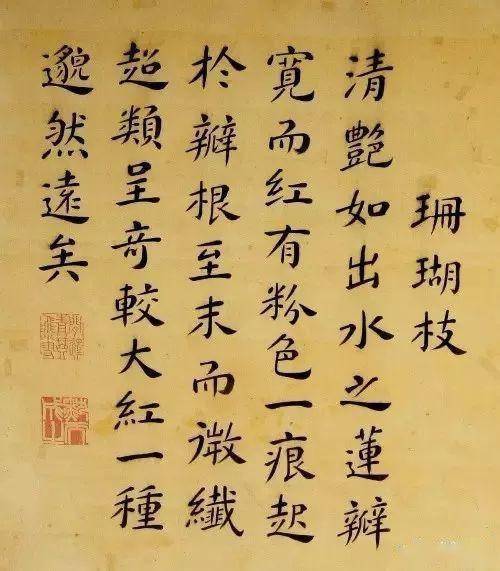 珊瑚枝
清艷如出水之蓮瓣
寬而红有粉色一痕起
於瓣根至末而微纖
超類呈奇較大紅一種
邈然遠矣